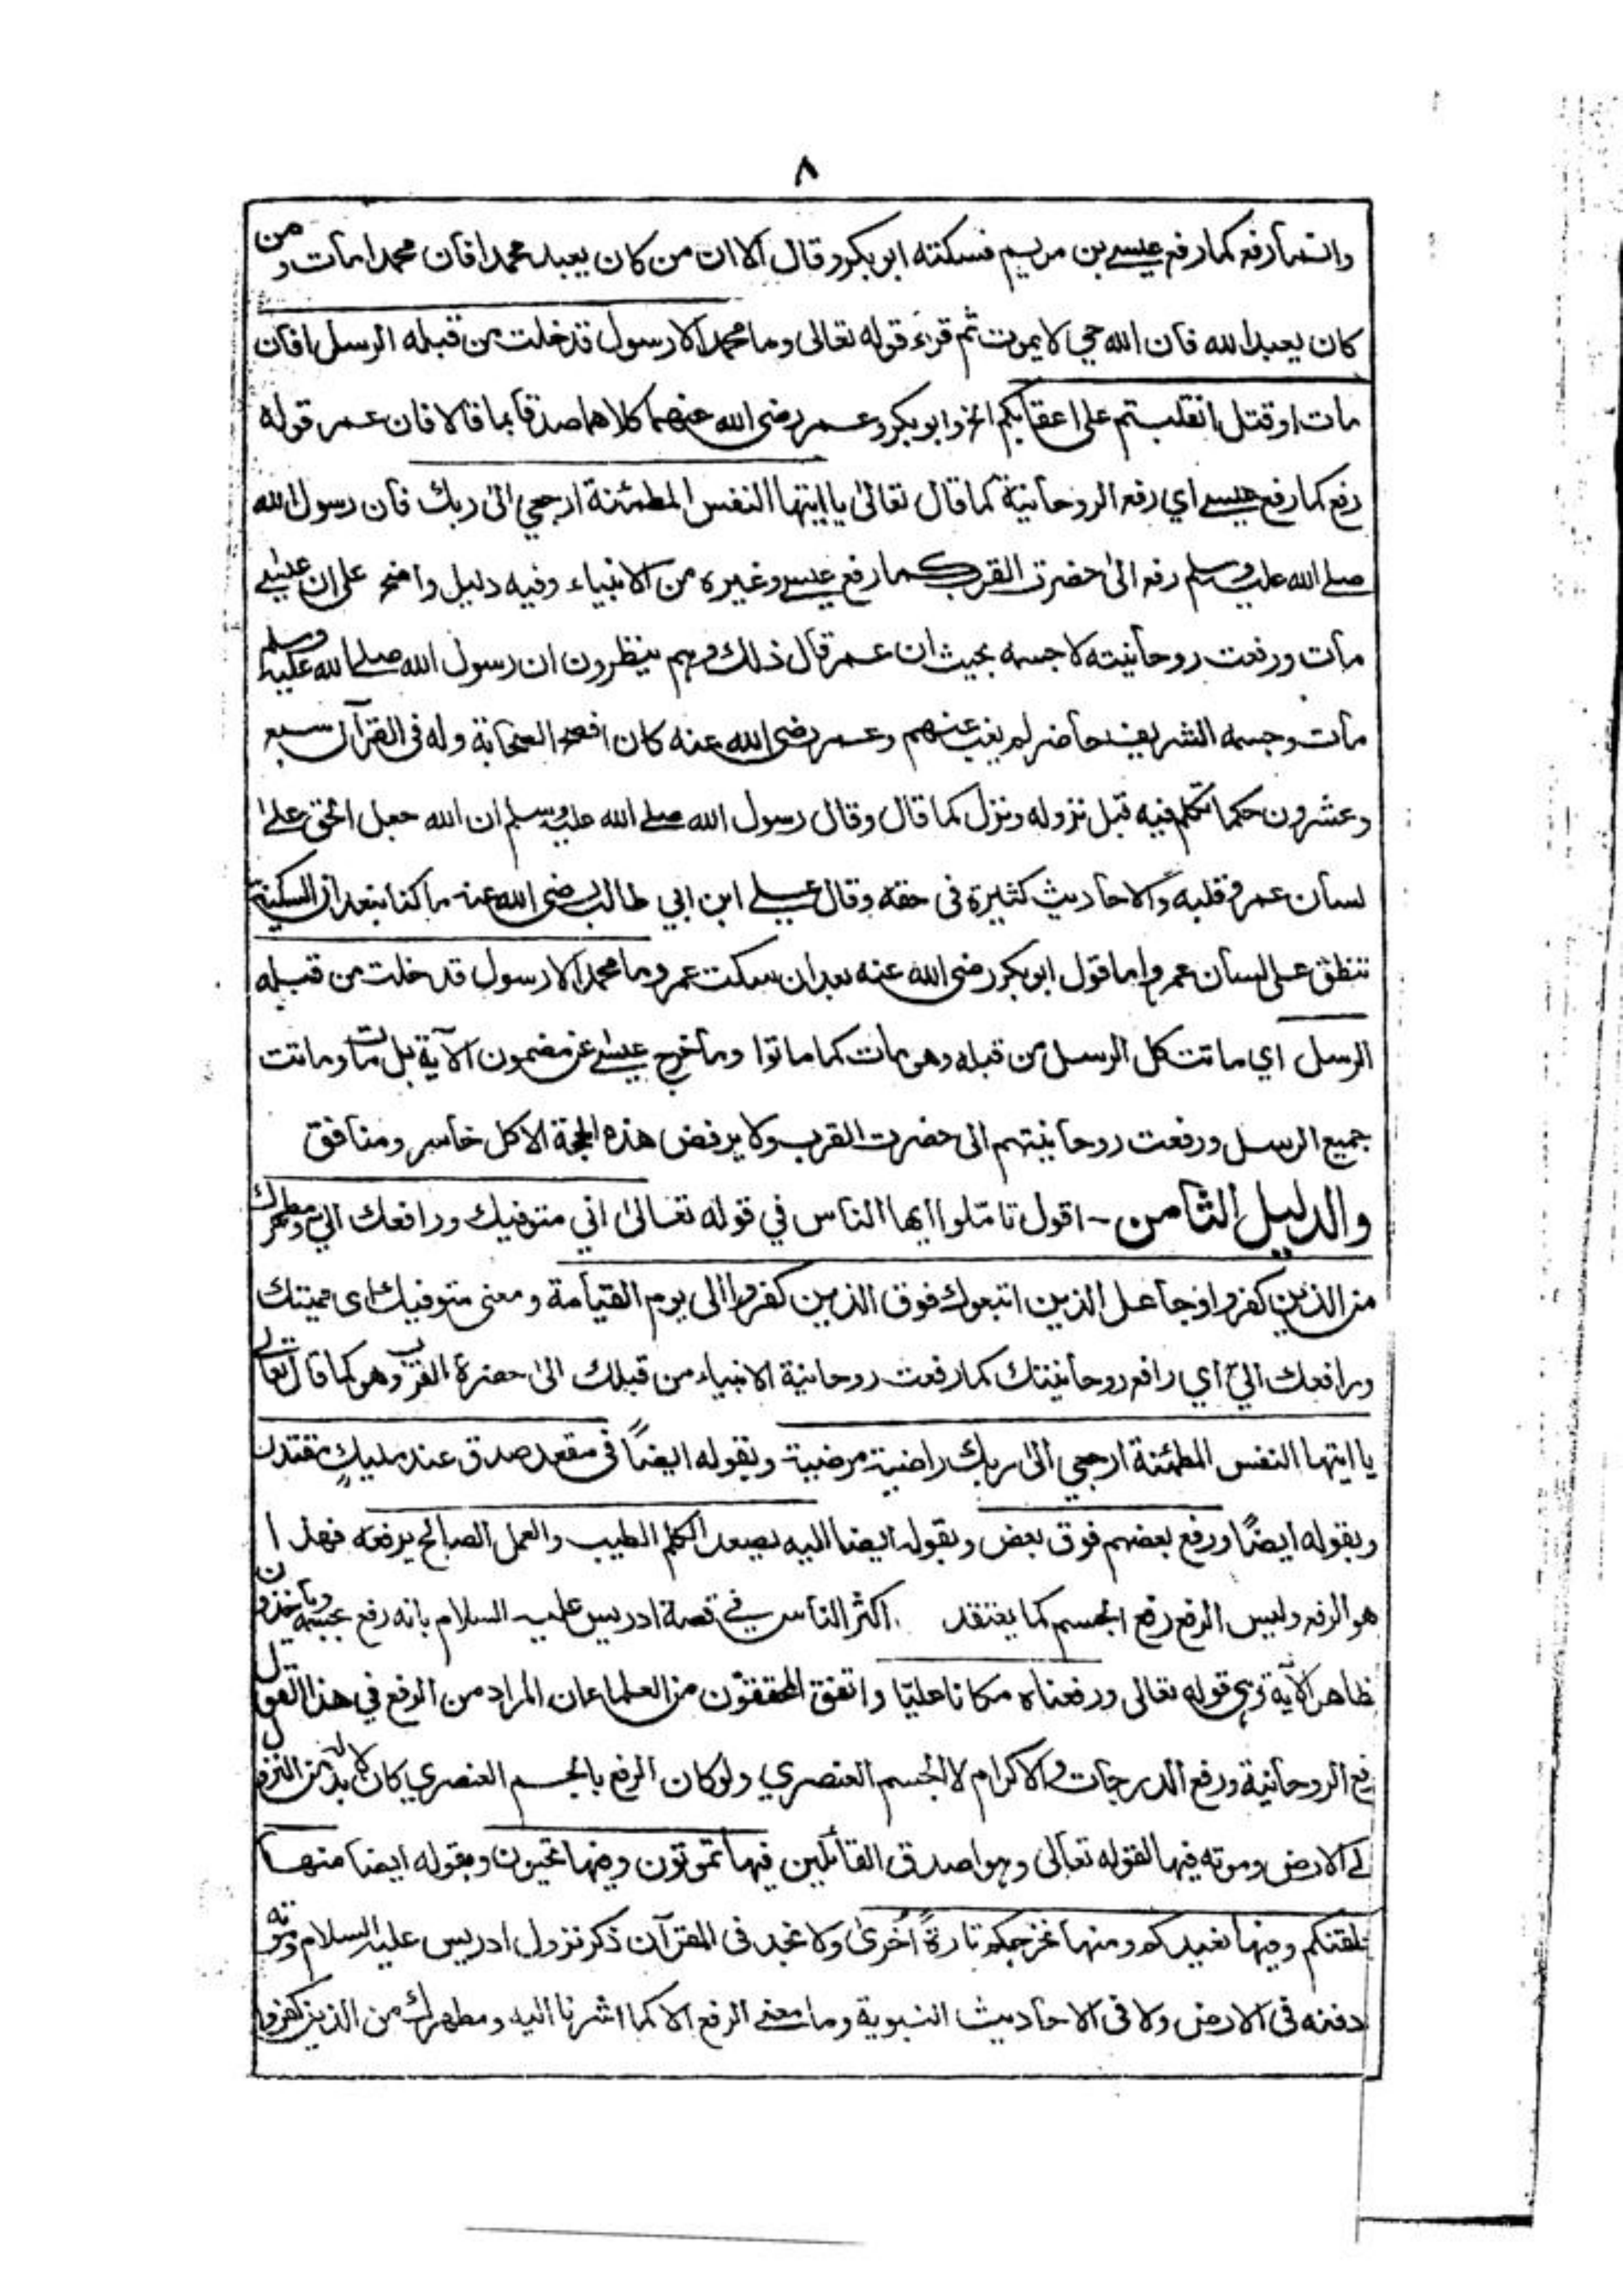 ٨
وانما رفع كما رفع عيسى بن مريم فسكته ابو بكر وقال الا ان من كان يعبد محمدا فان محمدا مات ومن
كان يعبد الله فان الله حي لا يموت ثم قرء قوله تعالى وما محمد الا رسول قد خلت من قبله الرسل افان
مات او قتل انقلبتم على اعقابكم الخ وابو بكر وعمر رضى الله عنهما كلاهما صدقا بما قالا فان عمر قوله
رفع كما رفع عيسى اي رفع الروحانية كما قال تعالى يا ايتها النفس المطمئنة ارجعي الى ربك فان رسول الله
صلى الله عليه وسلم رفع الى حضرت القرب كما رفع عيسى وغيره من الانبياء وفيه دليل واضح على ان عيسى
مات ورفعت روحانيته لا جسمه بحيث ان عمر قال ذلك وهم ينظرون ان رسول الله صلى الله عليه وسلم
مات وجسمه الشريف حاضر لم يغب عنهم وعمر رضى الله عنه كان افصح الصحابة وله فى القرآن سبع
وعشرون حكما تكلم فيه قبل نزوله ونزل كما قال وقال رسول الله صلى الله عليه وسلم ان الله جعل الحق على
لسان عمر وقلبه والاحاديث كثيرة فى حقه وقال على ابن ابي طالب رضى الله عنه ما كنا نبعد ان السكينة
تنطق على لسان عمر واما قول ابو بكر رضى الله عنه بعد ان سكت عمر وما محمد الا رسول قد خلت من قبله
الرسل اي ماتت كل الرسل من قبله وهو مات كما ماتوا وما خرج عيسى عن مضمون الآية بل مات وماتت
جميع الرسل ورفعت روحانيتهم الى حضرت القرب ولا يرفض هذه الحجة الا كل خاسر ومنافق
والدليل الثامن - اقول تامّلوا ايها الناس في قوله تعالى اني متوفيك ورافعك الي ومطهرك
من الذين كفروا وجاعل الذين اتبعوك فوق الذين كفروا الى يوم القيامة ومعنى متوفيك اى مميتك
ورافعك اليّ اي رافع روحانيتك كما رفعت روحانية الانبياء من قبلك الى حضرة القرب وهو كما قال تعالى
يا ايتها النفس المطمئنة ارجعي الى ربك راضية مرضية وبقوله ايضاً فى مقعد صدق عند مليكٍ مقتدر
وبقوله ايضًا ورفع بعضهم فوق بعض وبقوله ايضا اليه يصعد الكلم الطيب والعمل الصالح يرفعه فهذا
هو الرفع وليس الرفع رفع الجسم كما يعتقد اكثر الناس في قصة ادريس عليه السلام بانه رفع بجسمه وياخذون
ظاهر الآية وهى قوله تعالى ورفعناه مكانا عليّا واتفق المحققون من العلما عان المراد من الرفع في هذا القول
رفع الروحانية ورفع الدرجات والاكرام لا الجسم العنصري ولو كان الرفع بالجسم العنصري كان لا بد له من النزول
الى الارض وموته فيها لقوله تعالى وهو اصدق القائلين فيها تموتون وفيها تحيون وبقوله ايضا منها
خلقنكم وفيها نعيدكم ومنها نخرجكم تارةً اُخرىٰ ولا نجد فى القرآن ذكر نزول ادريس عليه السلام وموته
ودفنه فى الارض ولا فى الاحاديث النبوية وما معنى الرفع الا كما اشرنا اليه ومطهرك من الذين كفروا